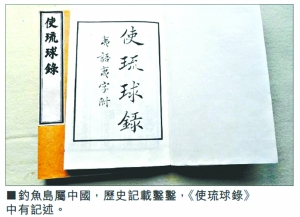 使琉球錄
使琉球錄
夷語夷字附
■釣魚島屬中國，歷史記載鑿鑿，《使琉球錄》
中有記述。